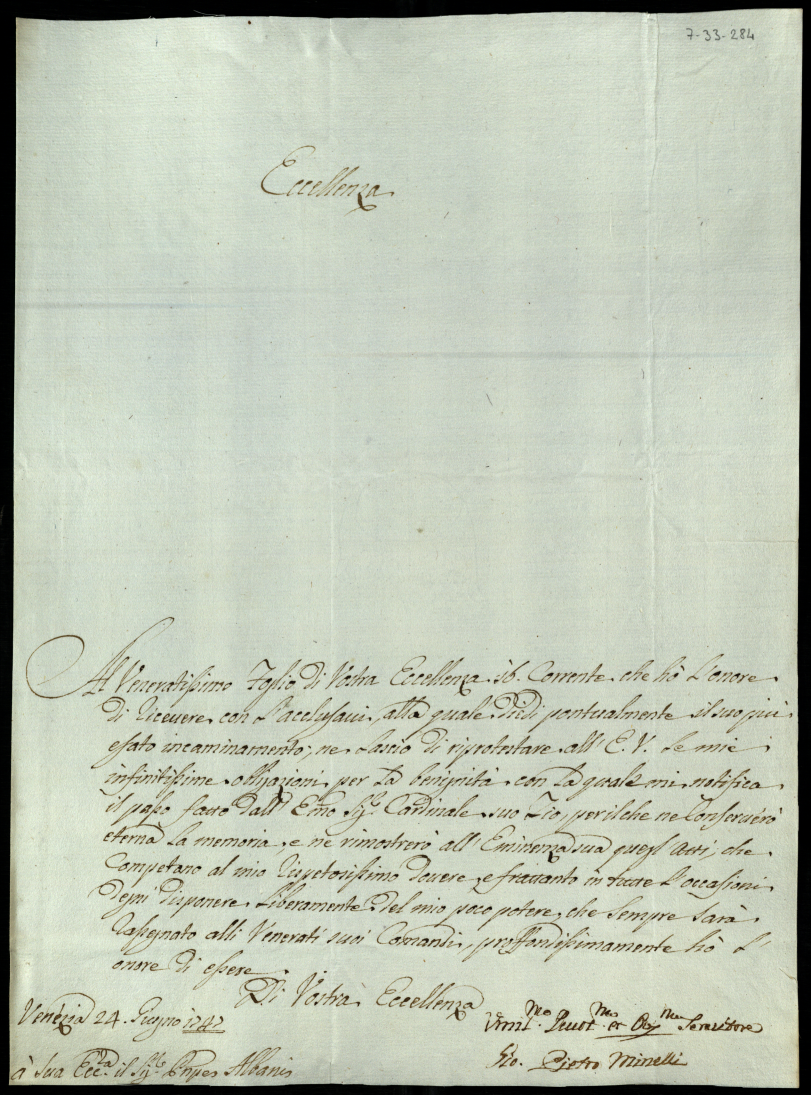 7-33-284
Eccellenza
Al Veneratissimo Foglio di Vostra Eccellenza 16. Corrente, che hò l'onore
di ricevere con l'acclusavi, alla quale diedi pontualmente il suo più
esato incaminamento, ne lascio di riprotestare all'E.V. le mie
infinitissime obligazioni per la benignità con la quale mi notifica
il passo fatto dall'Emo Sigr Cardinale suo Zio, perilche ne conserverò
eterna la memoria, e ne rimostrerò all'Eminenza sua quegl'atti, che
competano al mio rispetosissimo dovere, e frattanto in tutte l'occasioni
degni disponere liberamente del mio poco potere, che sempre sarà
rassegnato alli Venerati suoi Comandi, proffondissimamente hò l'
onore di essere
Di Vostra Eccellenza
Venezia 24. Giugno 1747
Umilmo Devotmo et Obmo Servitore
à Sua Eccza il Sigre Pnpe Albani
Gio. Pietro Minelli